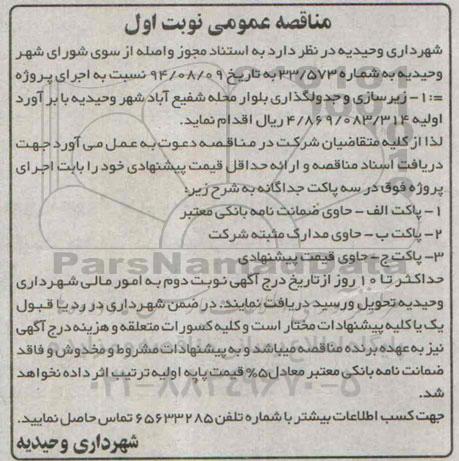 مناقصه عمومی نوبت اول
شهرداری وحیدیه در نظر دارد به استناد مجوز واصله از سوی شورای شهر
وحیدیه به شماره ۳۳/۵۷۳ به تاریخ ۹۴/۰۸/۰۹ نسبت به اجرای پروژه
=:۱- زیرسازی و جدولگذاری بلوار محله شفیع آباد شهر وحیدیه با بر آورد
اولیه ۴/۸۶۹/۰۸۳/۳۱۴ ریال اقدام نماید.
لذا از کلیه متقاضیان شرکت در مناقصه دعوت به عمل می آورد جهت
دریافت اسناد مناقصه و ارائه حداقل قیمت پیشنهادی خود را بابت اجرای
پروژه فوق در سه پاکت جداگانه به شرح زیر:
۱- پاکت الف - حاوی ضمانت نامه بانکی معتبر
۲- پاکت ب - حاوی مدارک مثبته شرکت
۳- پاکت ج - حاوی قیمت پیشنهادی
ParsNamadData
حداکثر تا ۱۰ روز از تاریخ درج آگهی نوبت دوم به امور مالی شهرداری
وحیدیه تحویل و رسید دریافت نمایند. در ضمن شهرداری در رد یا قبول
یک یا کلیه پیشنهادات مختار است و کلیه کسورات متعلقه و هزینه درج آگهی
نیز به عهده برنده مناقصه میباشد و به پیشنهادات مشروط و مخدوش و فاقد
ضمانت نامه بانکی معتبر معادل ۵% قیمت پایه اولیه ترتیب اثر داده نخواهد
شد.
۰۲۱-۸۸۳۴۹۶۷۰-۵
جهت کسب اطلاعات بیشتر با شماره تلفن ۶۵۶۳۳۲۸۵ تماس حاصل نمایید.
شهرداری وحیدیه